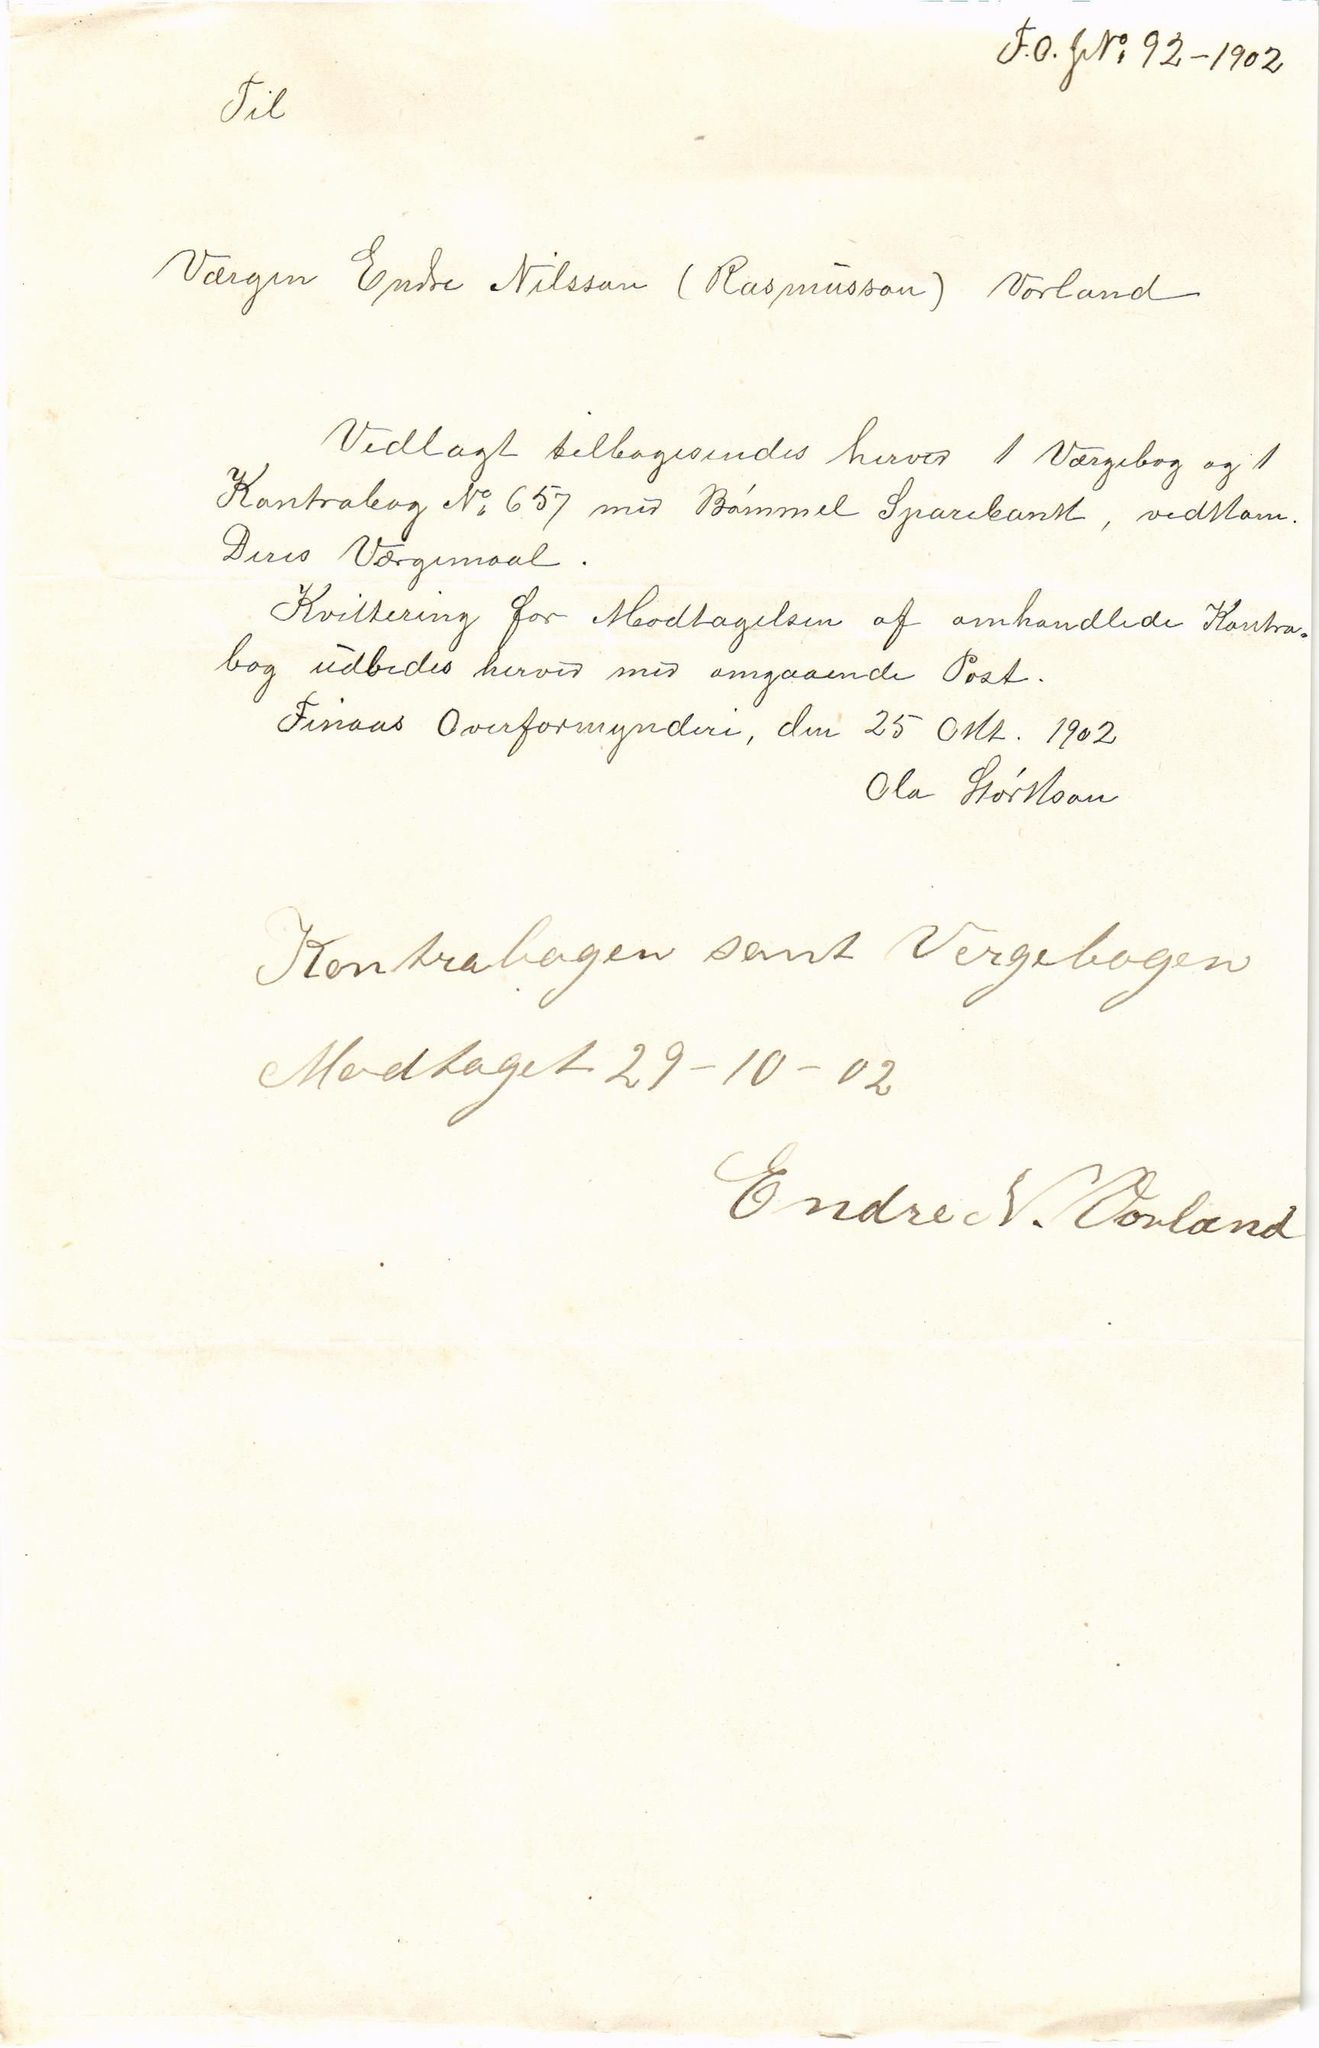 F.O. J.No. 92-1902
Til
Værgen Endre Nilsson (Rasmusson) Vorland
Vedlagt tilbagesendes herved 1 Værgebog og 1
Kontrabog No. 657 med Bømmel Sparebank, vedkom.
Deres Værgemaal.
Kvittering for Modtagelsen af omhandlede Kontra-
bog udbedes herved med omgaaende Post.
Finaas Overformynderi, den 25 Okt. 1902
Ola Størkson
Kontrabogen samt Vergebogen
Modtaget 29-10-02
Endre N. Vorland